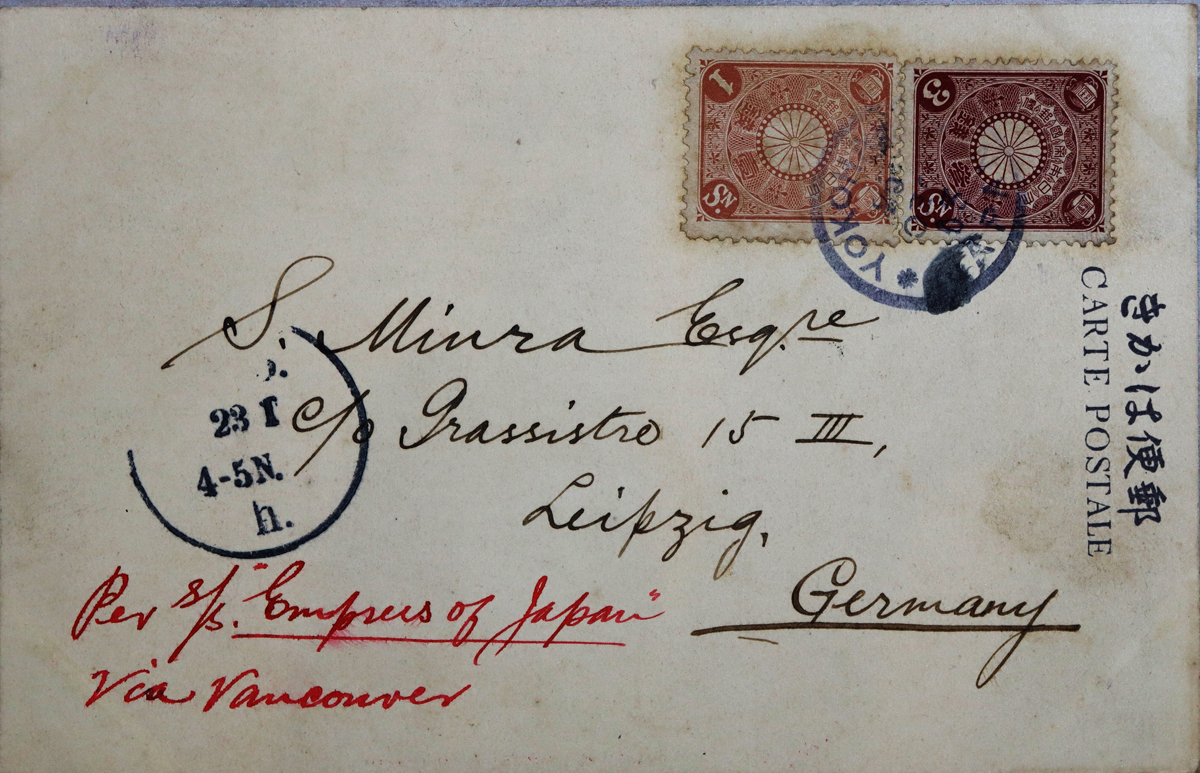 1
S.N
3
S.N
YOKO
郵便はかき
CARTE POSTALE
S. Miura Esq.re
c/o Grassistre 15 III,
Leipzig,
Germany
23 I
4-5N.
h.
Per s/s. "Empress of Japan"
Via Vancouver